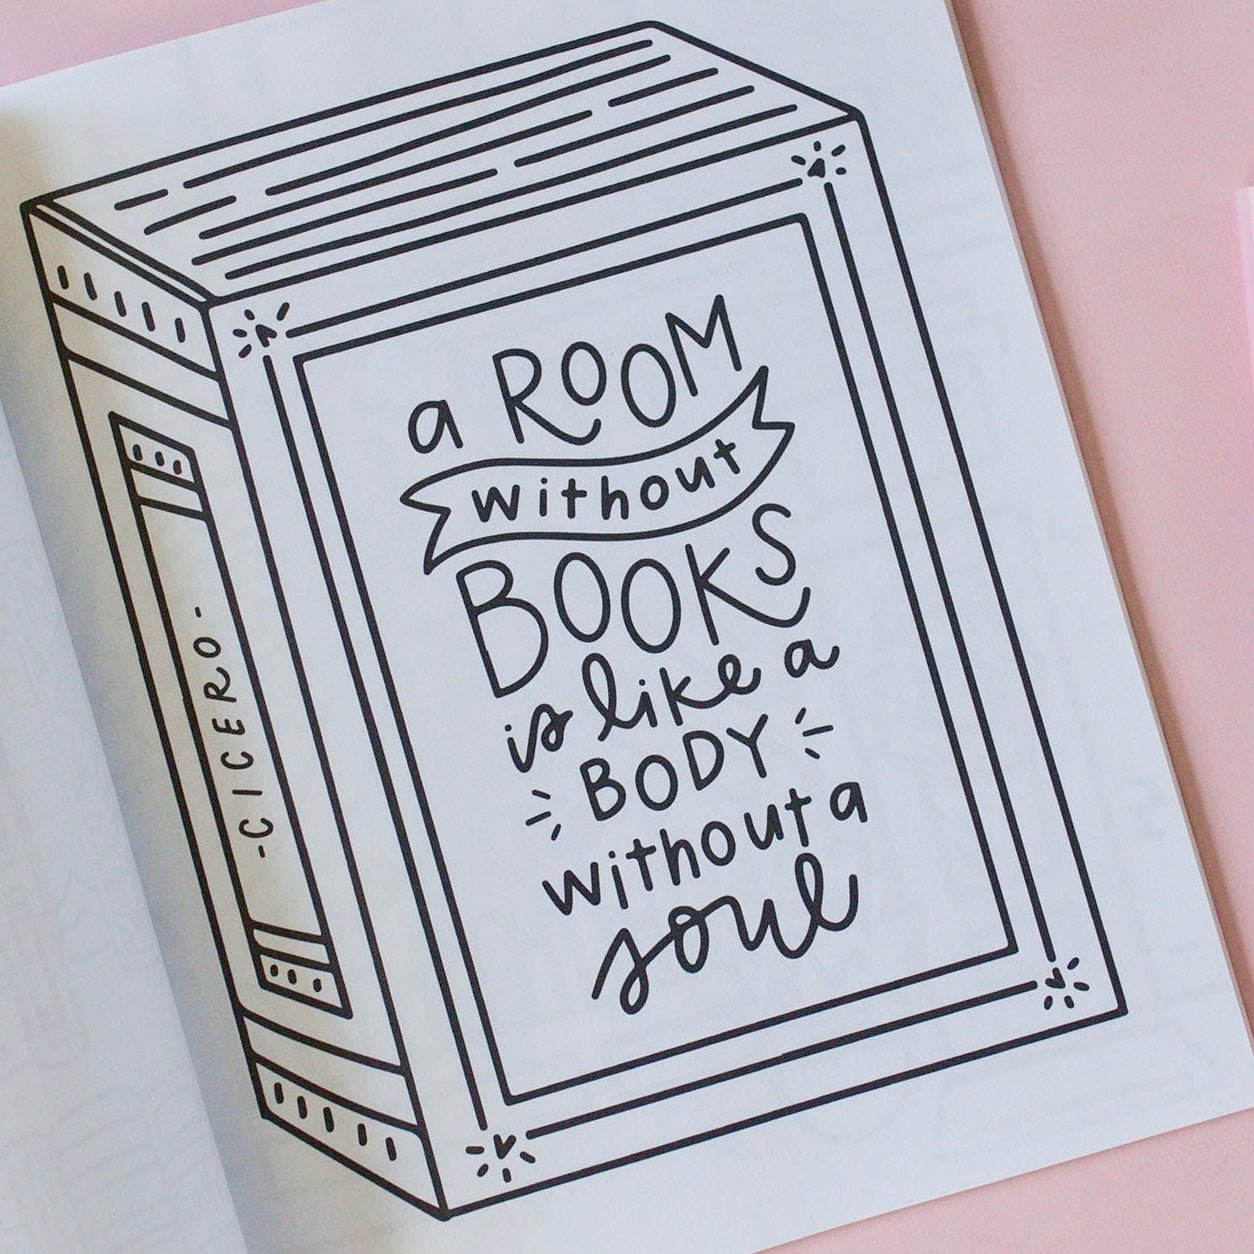 a ROOM
without
BOOKS
is like a
BODY
without a
soul
-CICERO-